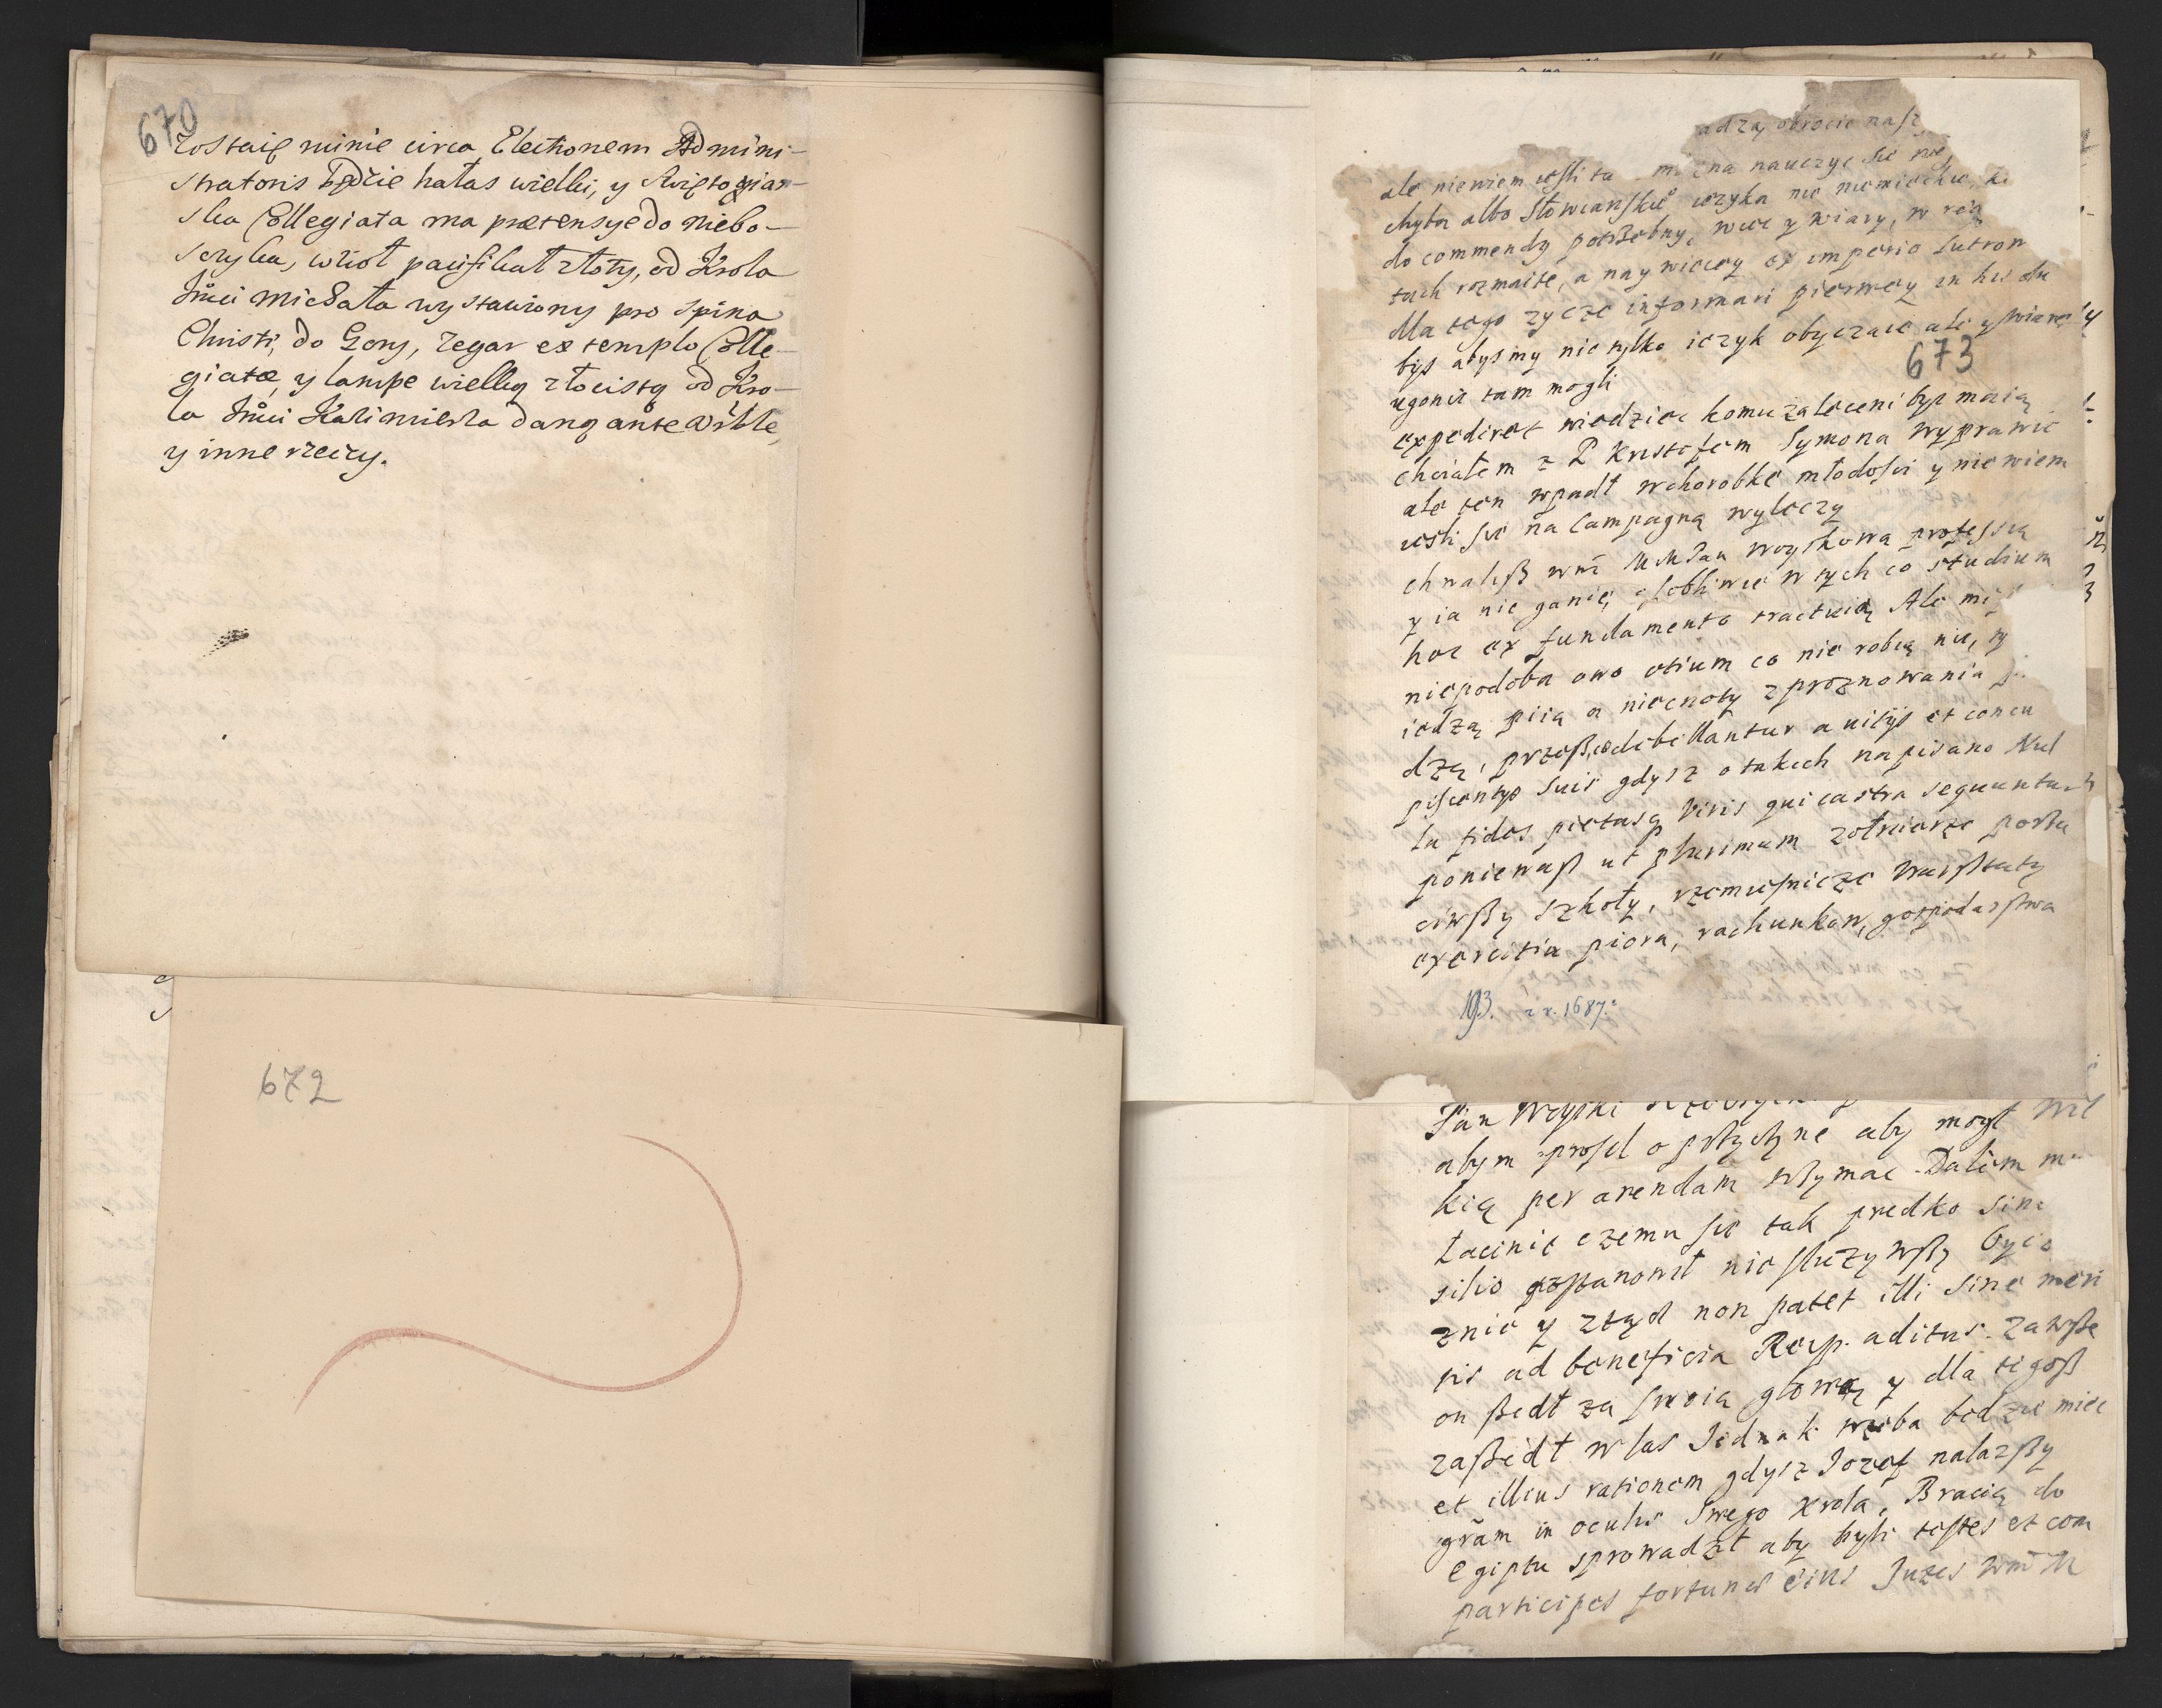 670
Zostaię ninie circa Electionem Admini-
stratoris będzie hałas wielki, y Swiętogian-
ska Collegiata ma prætensye do niebo-
szczyka, wzioł pacifikał złoty, od Krola
Jmci Michała wystawiony pro Spina
Christi, do Gory, Zegar ex templo Colle-
giatæ, y lampe wielką złocistą od Kro-
la Jmci Kazimierza daną ante
y inne rzeczy.
672
adzą obrocic nasz
ale niewiem iesli ta można nauczyc sie
chyba albo Słowianskie ięzyka nie niemieckie,
do commendy potrzebny, wiec y wiary, w
tach rozmaite, a naywiecey ex imperio Lutron
dla tego zycze informari pierwey
bys abysmy nie tylko iezyk obyczaie ale y wiare
673
ugonic tam mogli
expediret wiedziec komu zaleceni byc maią
chciałem z P Kristofem Symona wyprawic
ale ten wpadł wchorobke młodosci y niewiem
iesli sie na Campagną wyleczy
chwalisz wm M M Pan woyskowa professią
y ia nie ganie, osobliwie w tych co studium
hoc ex fundamento tractuią Ale mi
niepodoba owo otium co nie robią nic,
iedzą piią a niecnoty z proznowania
dzą, przeszło debellantur a vitijs et concu
piscentijs suis gdysz o takich napisano Nul
la fides pietasq viris qui castra sequuntur
poniewasz ut plurimum zołnierze porzu
ciwszy szkoły, rzemieśnicze warsztaty
exercitia piora, rachunkow, gospodarstwa
193. z r. 1687.
Pan Woyski
abym prosil o przyczyne aby mogł
kią per arendam trzymac. Dałem
łacinie czemu sie tak predko sine
silio postanowił nie służywszy Oyczy
znie y ztąd non patet illi sine meri
tis ad beneficia Reip. aditus. Zawsze
on szedł za swoią głową y dla tegosz
zaszedł w las Jednak trzeba bedzie miec
et illius rationem gdysz Jozef nalazszy
grãm in oculis Swego Krola, Bracią do
Egiptu sprowadził aby byli testes et com
participes fortunæ eius Juzes wm M